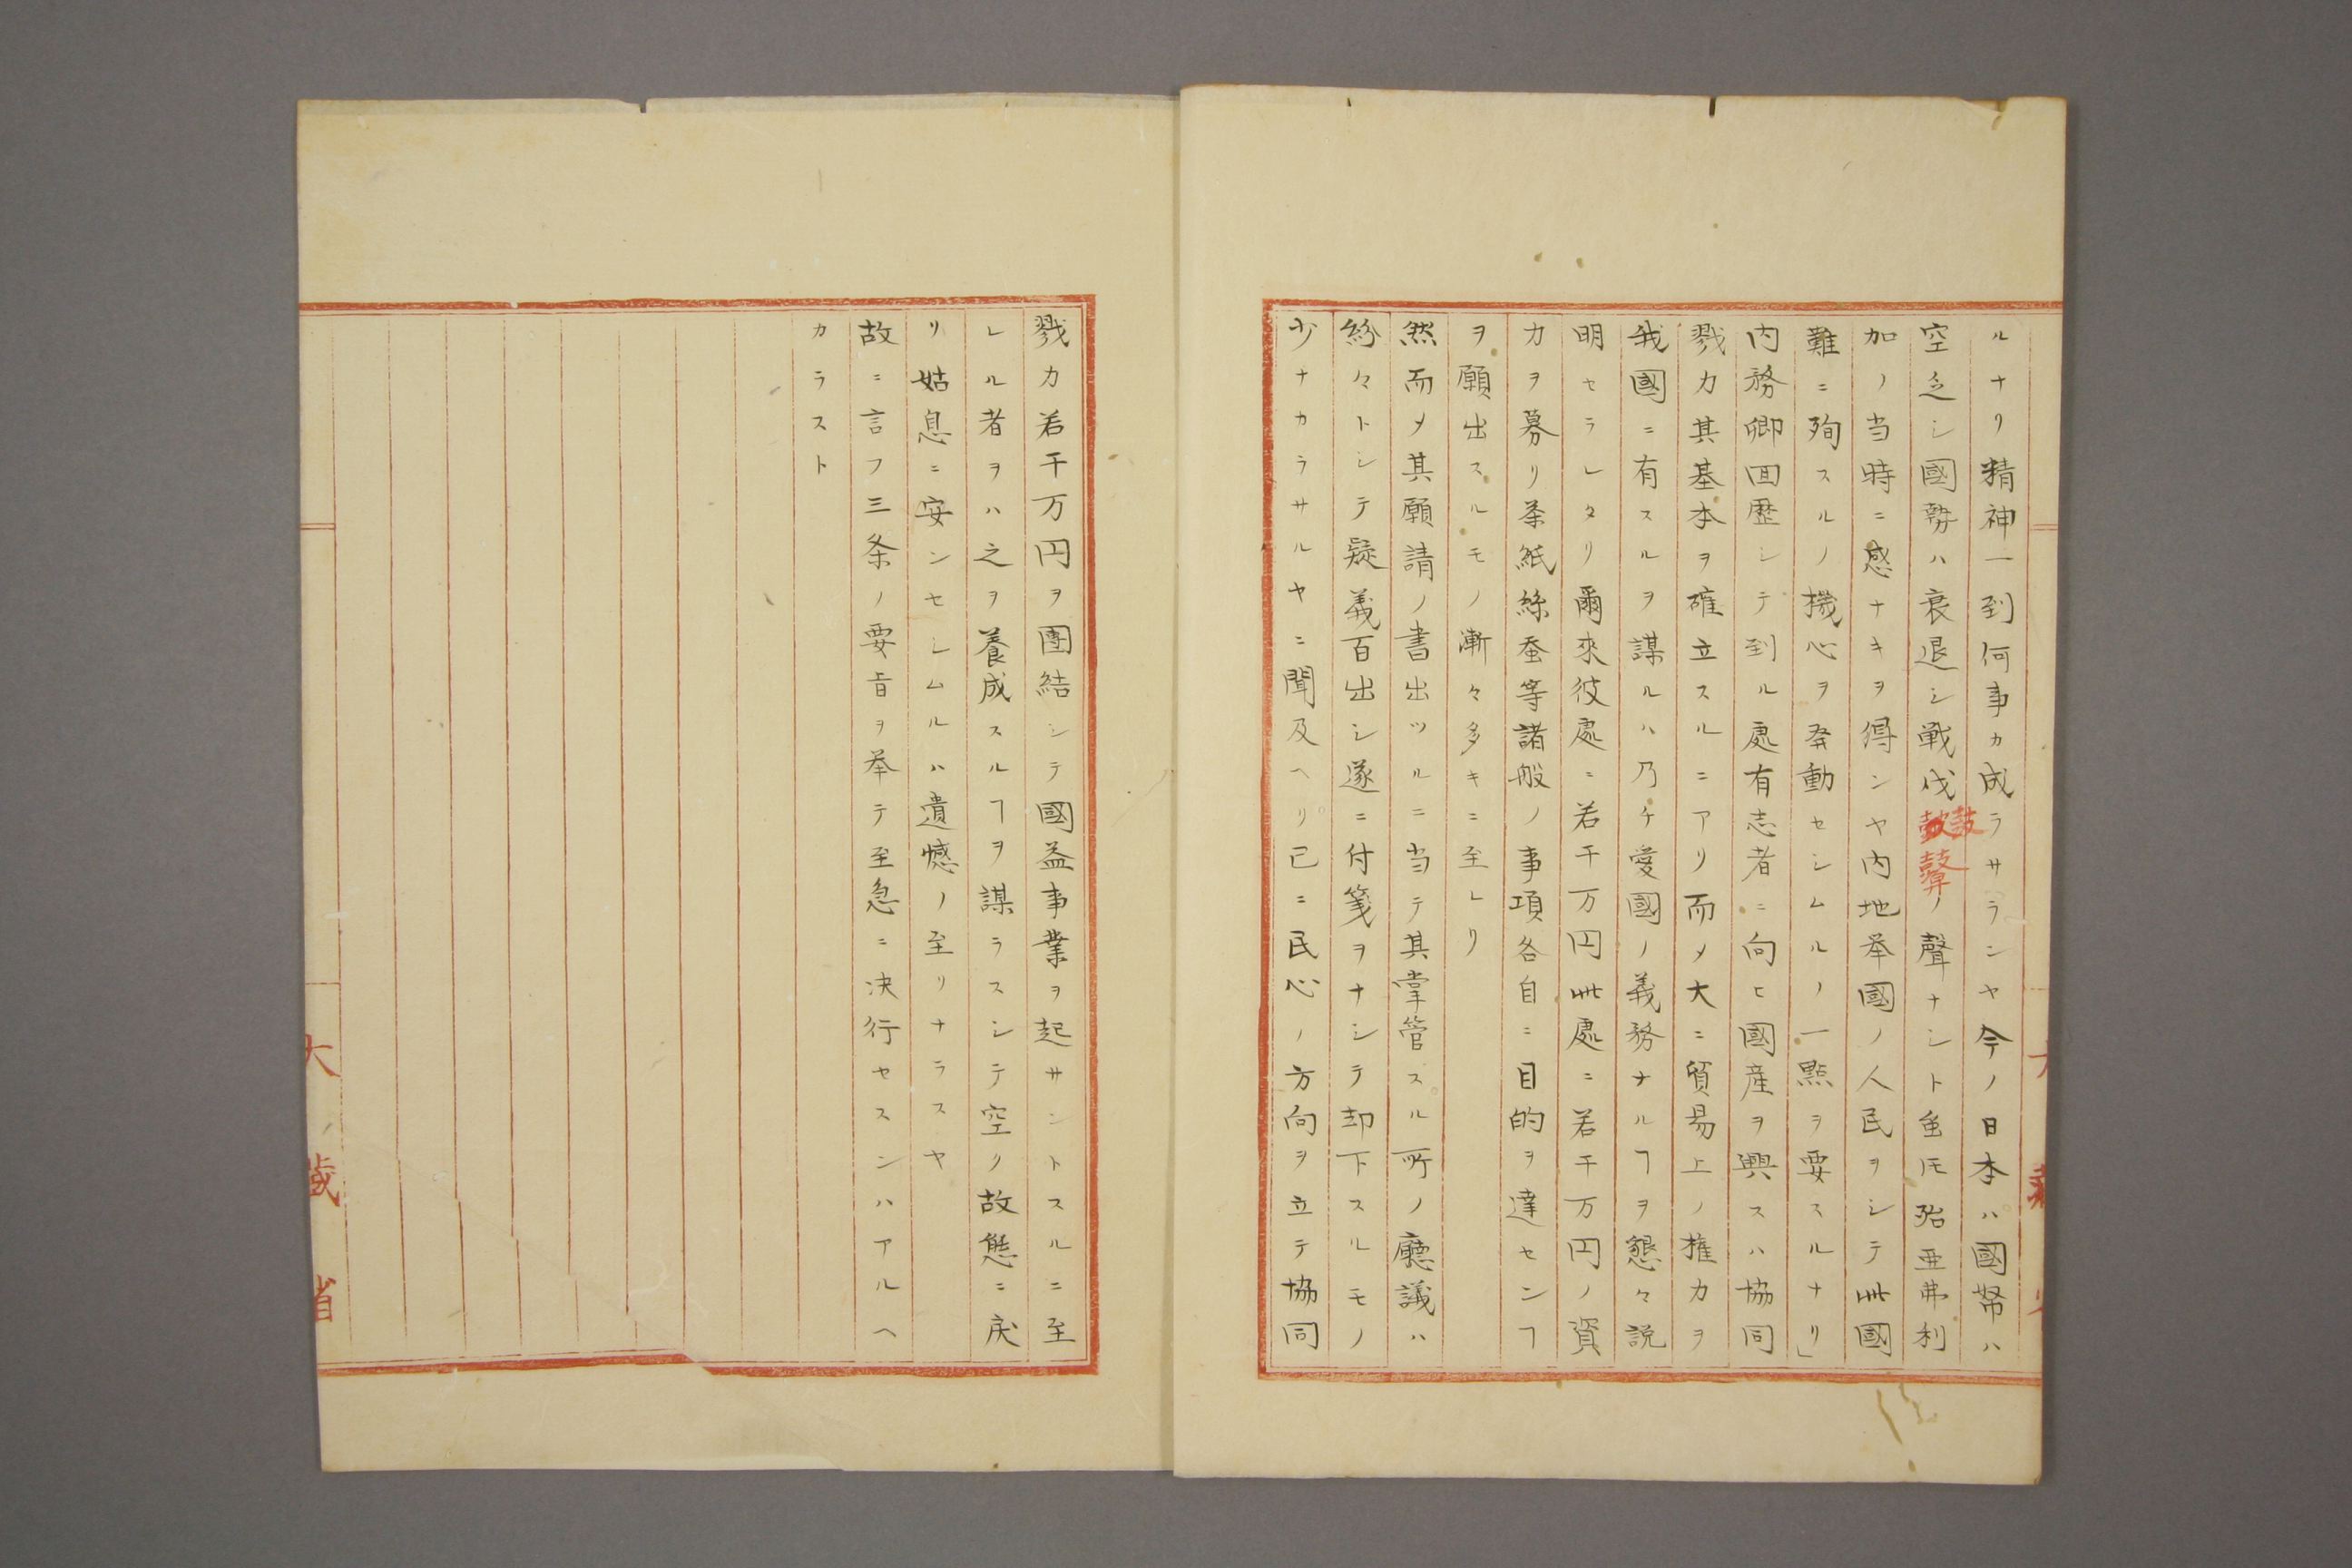 ルナリ精神一到何事カ成ラサランヤ今ノ日本ハ國幣ハ
空乏シ國勢ハ衰退シ戦伐鼓鼙ノ聲ナシト虽𪜈殆亜弗利
加ノ当時ニ感ナキヲ得ンヤ内地挙國ノ人民ヲシテ此國
難ニ殉スルノ機心ヲ発動セシムルノ一點ヲ要スルナリ」
内務卿回歴シテ到ル處有志者ニ向ヒ國産ヲ興スハ協同
戮力其基本ヲ確立スルニアリ而メ大ニ貿易上ノ権力ヲ
我國ニ有スルヲ謀ルハ乃チ愛國ノ義務ナルヿヲ懇々説
明セラレタリ爾來彼處ニ若干万円此處ニ若干万円ノ資
力ヲ募リ茶紙絲蚕等諸般ノ事項各自ニ目的ヲ達センヿ
ヲ願出スルモノ漸々多キニ至レリ
然而メ其願請ノ書出ツルニ当テ其掌管スル所ノ廳議ハ
紛々トシテ疑義百出シ遂ニ付箋ヲナシテ却下スルモノ
少ナカラサルヤニ聞及ヘリ已ニ民心ノ方向ヲ立テ協同
戮力若干万円ヲ團結シテ國益事業ヲ起サントスルニ至
レル者ヲハ之ヲ養成スルヿヲ謀ラスシテ空ク故態ニ戻
リ姑息ニ安ンセシムルハ遺憾ノ至リナラスヤ
故ニ言フ三条ノ要旨ヲ挙テ至急ニ決行セスンハアルヘ
カラスト
大藏省